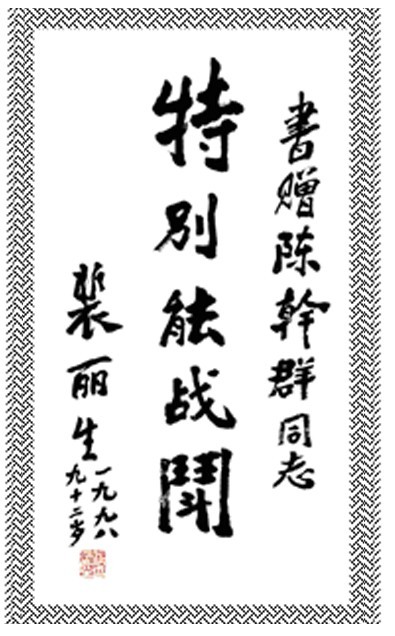 書赠陈幹群同志
特别能战鬪
裴丽生
一九九八
九十二岁